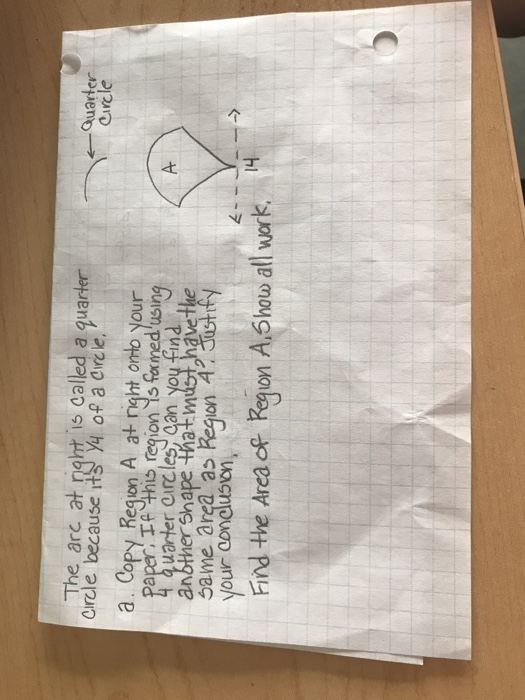 The arc at right is called a quarter
circle because it's 1/4 of a circle.
← Quarter
Circle
a. Copy Region A at right onto your
paper. If this region is formed using
4 quarter circles, can you find
another shape that must have the
same area as Region A? Justify
your conclusion.
A
14
Find the Area of Region A. Show all work.